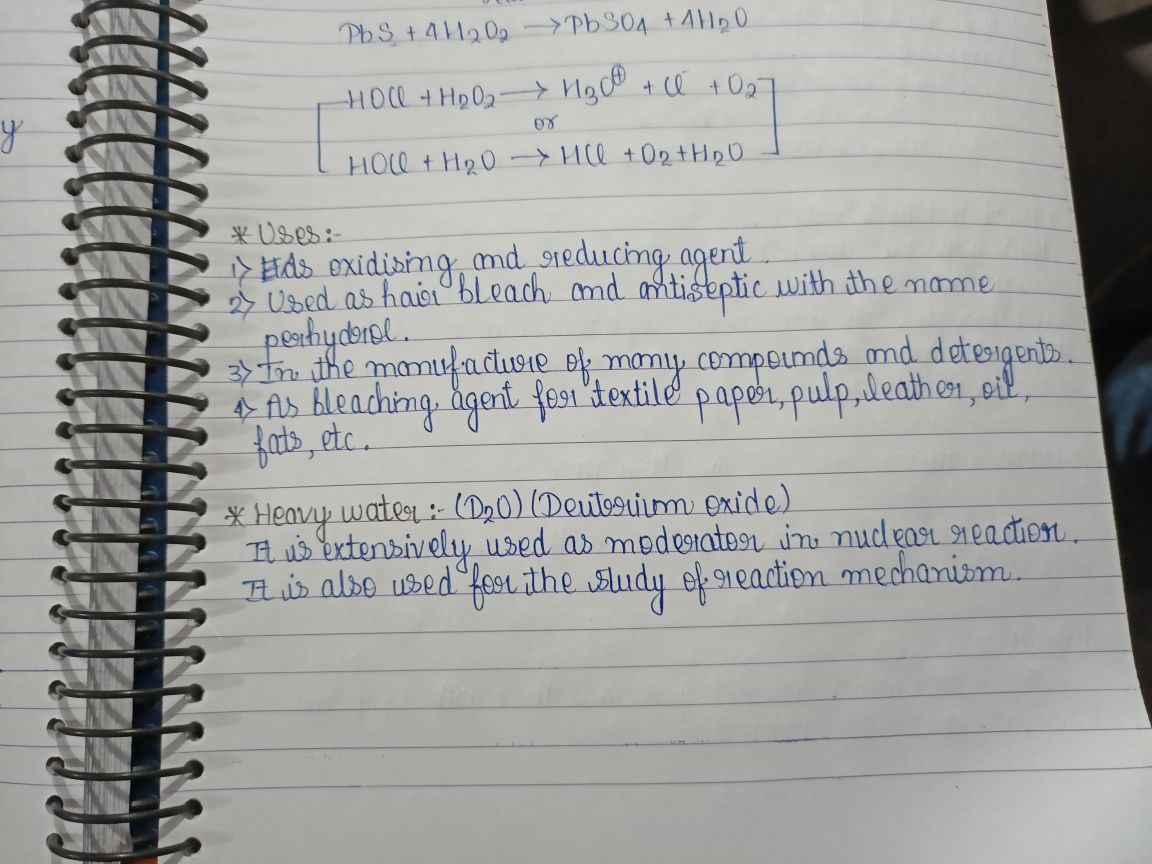 PbS + 4H2O2 → PbSO4 + 4H2O
HOCl + H2O2 → H3O⊕ + Cl⁻ + O2
or
HOCl + H2O → HCl + O2 + H2O
y
* Uses:-
1) As oxidising and reducing agent.
2) Used as hair bleach and antiseptic with the name
perhydrol.
3) In the manufacture of many compounds and detergents.
4) As bleaching agent for textile paper, pulp, leather, oil,
fats, etc.
* Heavy water :- (D2O) (Deuterium oxide)
It is extensively used as moderator in nuclear reaction.
It is also used for the study of reaction mechanism.